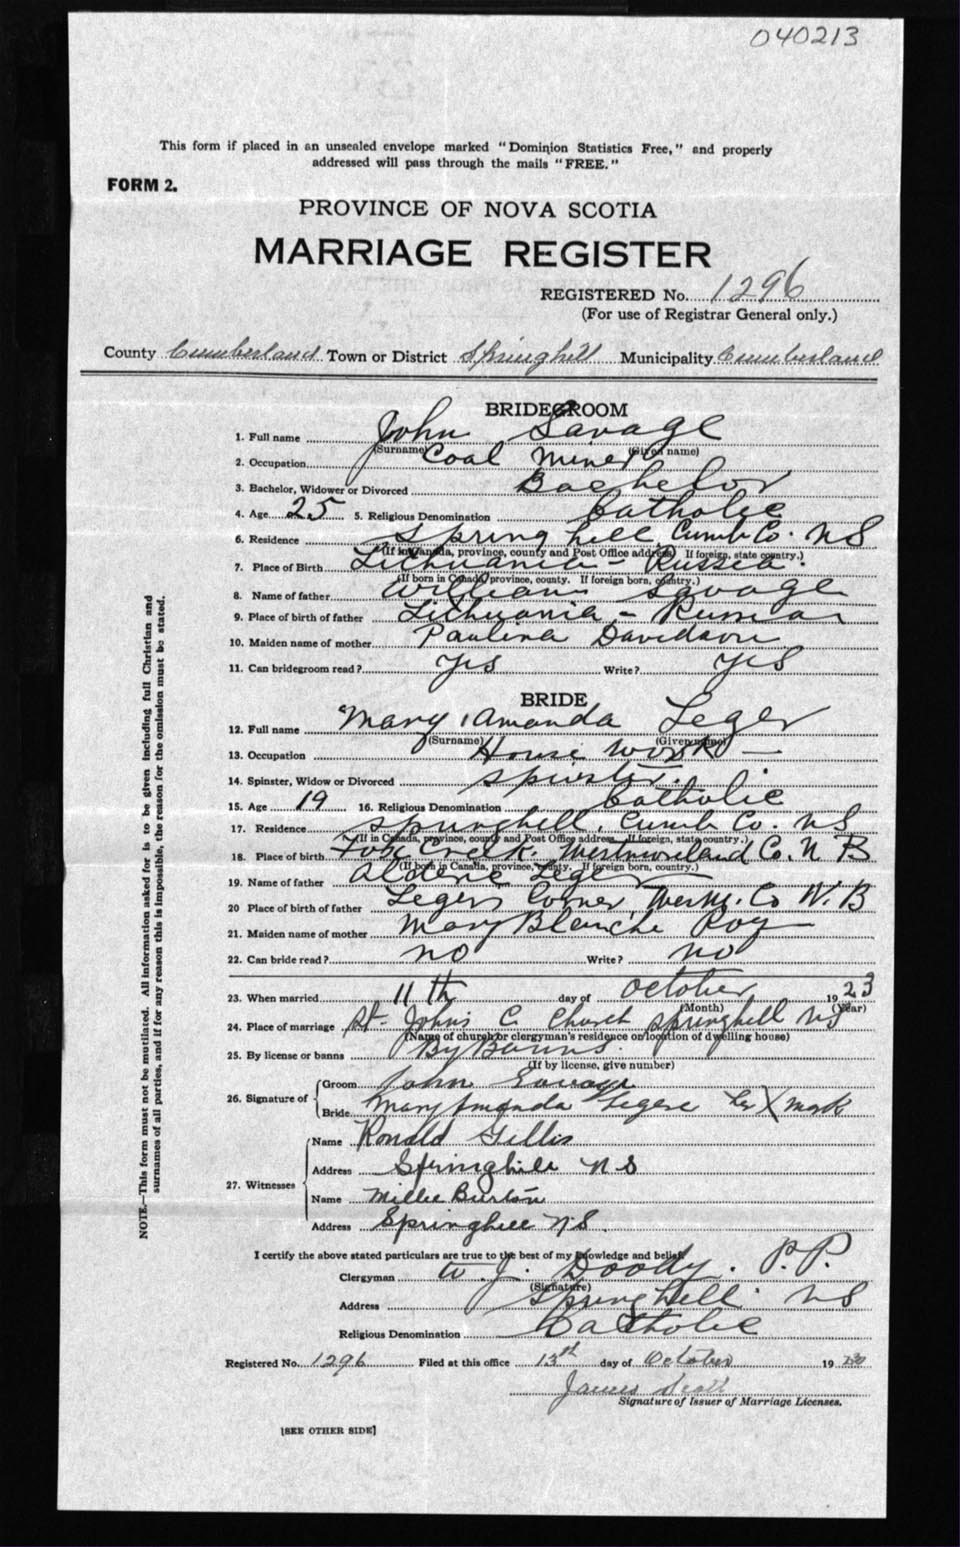 040213
This form if placed in an unsealed envelope marked "Dominion Statistics Free," and properly
addressed will pass through the mails "FREE."
FORM 2.
PROVINCE OF NOVA SCOTIA
MARRIAGE REGISTER
REGISTERED No. 1296
(For use of Registrar General only.)
County Cumberland Town or District Springhill Municipality Cumberland
BRIDEGROOM
1. Full name John Savage
(Surname) (Given name)
2. Occupation Coal Miner
3. Bachelor, Widower or Divorced Bachelor
4. Age 25 5. Religious Denomination Catholic
6. Residence Spring hill Cumb Co. NS
(If in Canada, province, county and Post Office address. If foreign, state country.)
7. Place of Birth Lithuania - Russia.
(If born in Canada, province, county. If foreign born, country.)
8. Name of father William Savage
9. Place of birth of father Lithuania - Russia
10. Maiden name of mother Paulina Davidson
11. Can bridegroom read? yes Write? yes
BRIDE
12. Full name Mary Amanda Leger
(Surname) (Given name)
13. Occupation House Work
14. Spinster, Widow or Divorced Spinster.
15. Age 19 16. Religious Denomination Catholic
17. Residence Springhill, Cumb Co. NS
(If in Canada, province, county and Post Office address. If foreign, state country.)
18. Place of birth Creek. Westmoreland Co. N B
(If born in Canada, province, county. If foreign born, country.)
19. Name of father Leger
20 Place of birth of father Legers Corner, Co N.B
21. Maiden name of mother Mary Blanche Roy
22. Can bride read? no Write? no
23. When married 11th day of October 1923
(Month) (Year)
24. Place of marriage St. John's C. Church Springhill NS
(Name of church or clergyman's residence or location of dwelling house)
25. By license or banns By Banns.
(If by license, give number)
26. Signature of
Groom John Savage
Bride Mary Amanda Legere her X mark
27. Witnesses
Name Ronald Gillis
Address Springhill N S
Name Millie Burton
Address Springhill N.S.
I certify the above stated particulars are true to the best of my knowledge and belief.
Clergyman W. J. Doody. P.P.
(Signature)
Address Spring hill. NS
Religious Denomination Catholic
Registered No. 1296 Filed at this office 13th day of October 19
James Scott
Signature of Issuer of Marriage Licenses.
[SEE OTHER SIDE]
NOTE.—This form must not be mutilated. All information asked for is to be given including full Christian and
surnames of all parties, and if for any reason this is impossible, the reason for the omission must be stated.